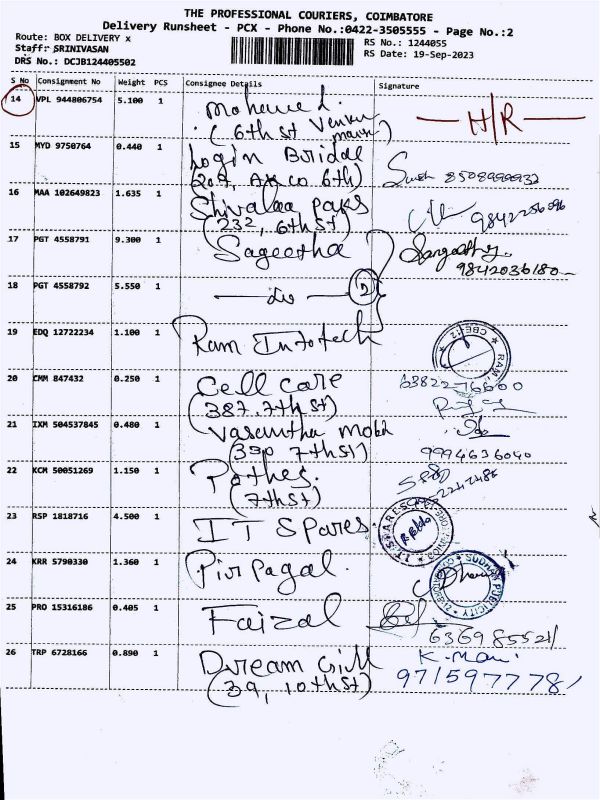 THE PROFESSIONAL COURIERS, COIMBATORE
Delivery Runsheet - PCX - Phone No.:0422-3505555 - Page No.:2
Route: BOX DELIVERY x
RS No.: 1244055
Staff: SRINIVASAN
RS Date: 19-Sep-2023
DRS No.: DCJB124405502
S No Consignment No Weight PCS Consignee Details Signature
14 VPL 944806754 5.100 1
(6th st
H/R
15 MYD 9750764 0.440 1 Login Bridal
6th)
16 MAA 102649823 1.635 1 Shivalaa Paks
(232, 6th st)
17 PGT 4558791 9.300 1 Sageetha
9842036180
18 PGT 4558792 5.550 1 2
19 EDQ 12722234 1.100 1 Ram Infotech
20 CMM 847432 0.250 1 Cell care
(387, 7th st)
21 IXM 504537845 0.480 1 Vasantha Mobil
(390 7th st) 9994636040
22 KCM 50051269 1.150 1 Pothes.
(7th st)
23 RSP 1818716 4.500 1 IT Spares
24 KRR 5790330 1.360 1 Pirpagal.
SUDHAN PUBLICITY
25 PRO 15316186 0.405 1 Faizal
26 TRP 6728166 0.890 1 Dream Gill K. Mani
(39, 10th st) 9715977781